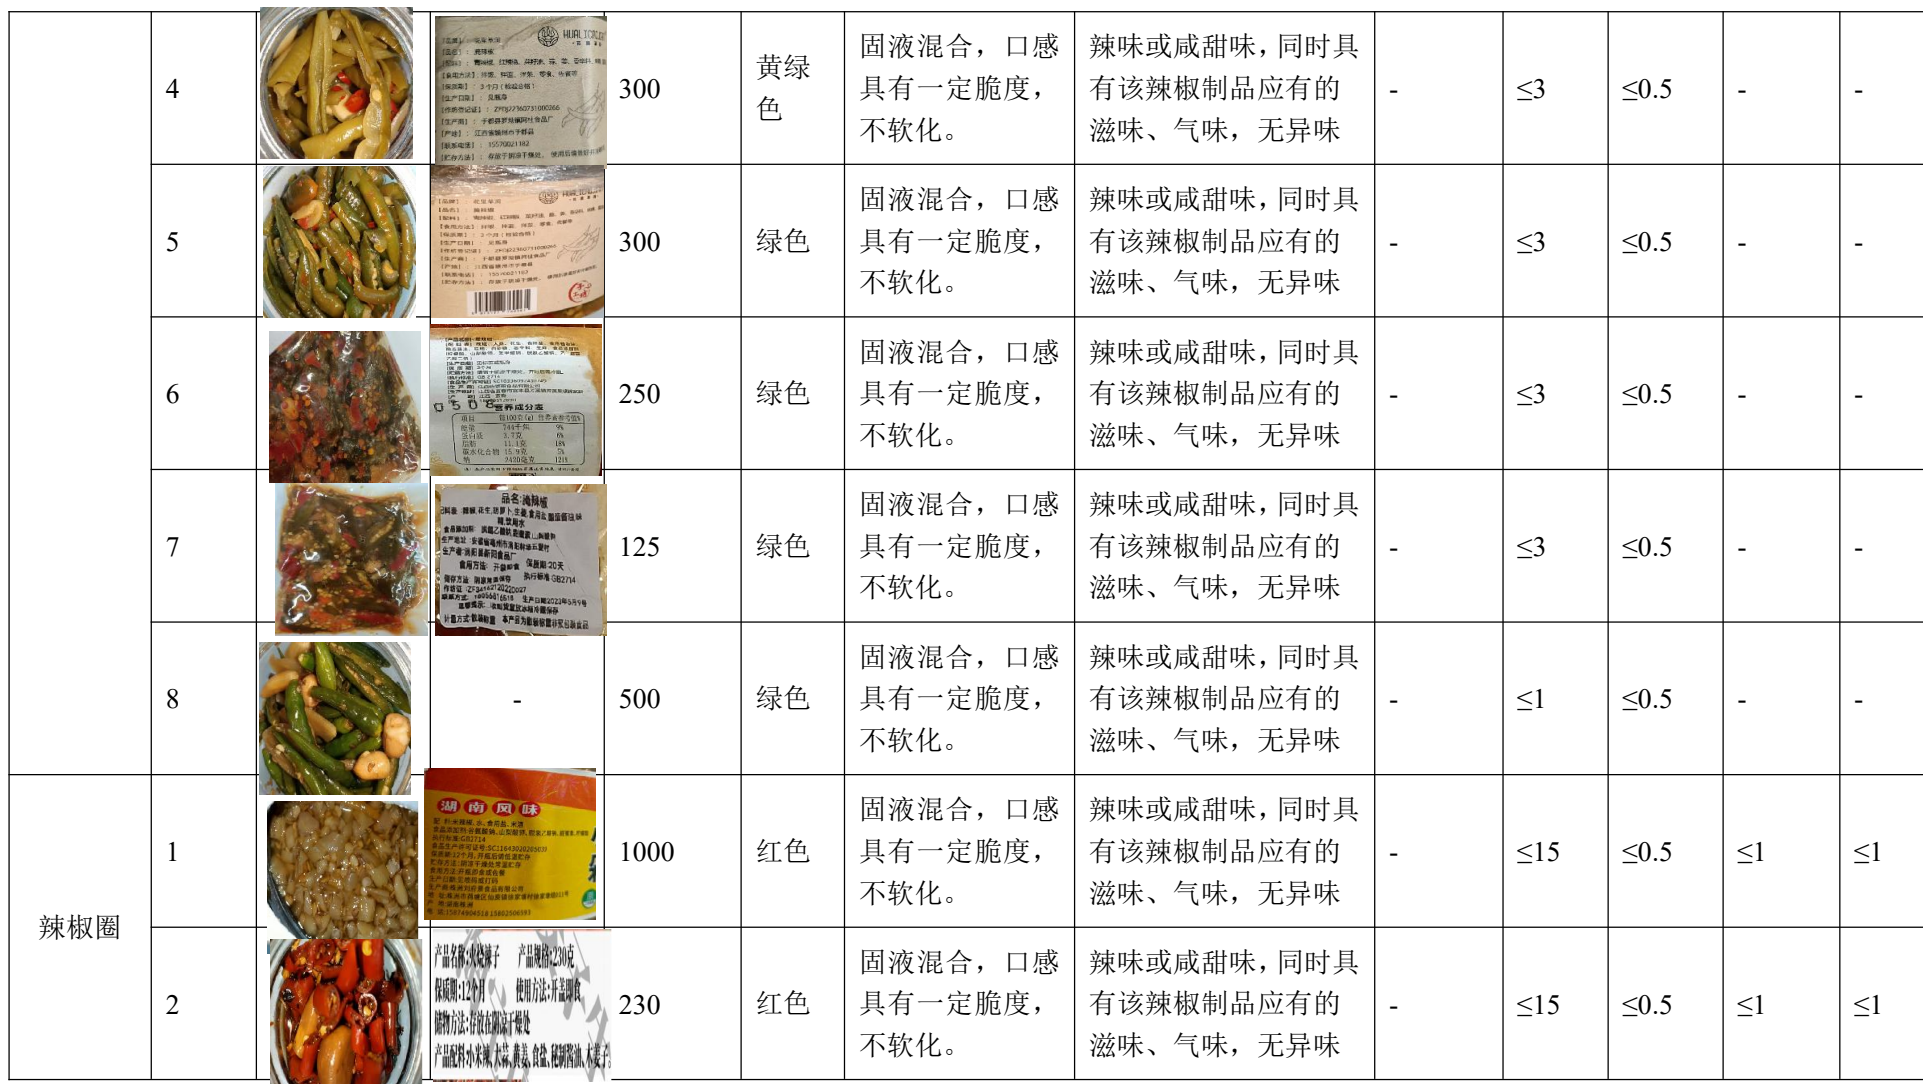 4
【品名】：腌辣椒
【保质期】：3个月（检验合格）
【生产日期】：见瓶身
【产地】：江西省赣州市于都县
【联系电话】：15570021182
300
黄绿
色
固液混合，口感
具有一定脆度，
不软化。
辣味或咸甜味，同时具
有该辣椒制品应有的
滋味、气味，无异味
-
≤3
≤0.5
-
-
5
300
绿色
固液混合，口感
具有一定脆度，
不软化。
辣味或咸甜味，同时具
有该辣椒制品应有的
滋味、气味，无异味
-
≤3
≤0.5
-
-
6
营养成分表
250
绿色
固液混合，口感
具有一定脆度，
不软化。
辣味或咸甜味，同时具
有该辣椒制品应有的
滋味、气味，无异味
-
≤3
≤0.5
-
-
7
品名:腌辣椒
食用方法: 开袋即食 保质期:20天
执行标准 GB2714
生产日期2023年5月9号
125
绿色
固液混合，口感
具有一定脆度，
不软化。
辣味或咸甜味，同时具
有该辣椒制品应有的
滋味、气味，无异味
-
≤3
≤0.5
-
-
8
-
500
绿色
固液混合，口感
具有一定脆度，
不软化。
辣味或咸甜味，同时具
有该辣椒制品应有的
滋味、气味，无异味
-
≤1
≤0.5
-
-
辣椒圈
1
湖南风味
1000
红色
固液混合，口感
具有一定脆度，
不软化。
辣味或咸甜味，同时具
有该辣椒制品应有的
滋味、气味，无异味
-
≤15
≤0.5
≤1
≤1
2
产品名称:火烧辣子 产品规格:230克
保质期:12个月 使用方法:开盖即食
储物方法:存放在阴凉干燥处
产品配料:小米辣、大蒜、黄姜、食盐、秘制酱油、木姜子
230
红色
固液混合，口感
具有一定脆度，
不软化。
辣味或咸甜味，同时具
有该辣椒制品应有的
滋味、气味，无异味
-
≤15
≤0.5
≤1
≤1